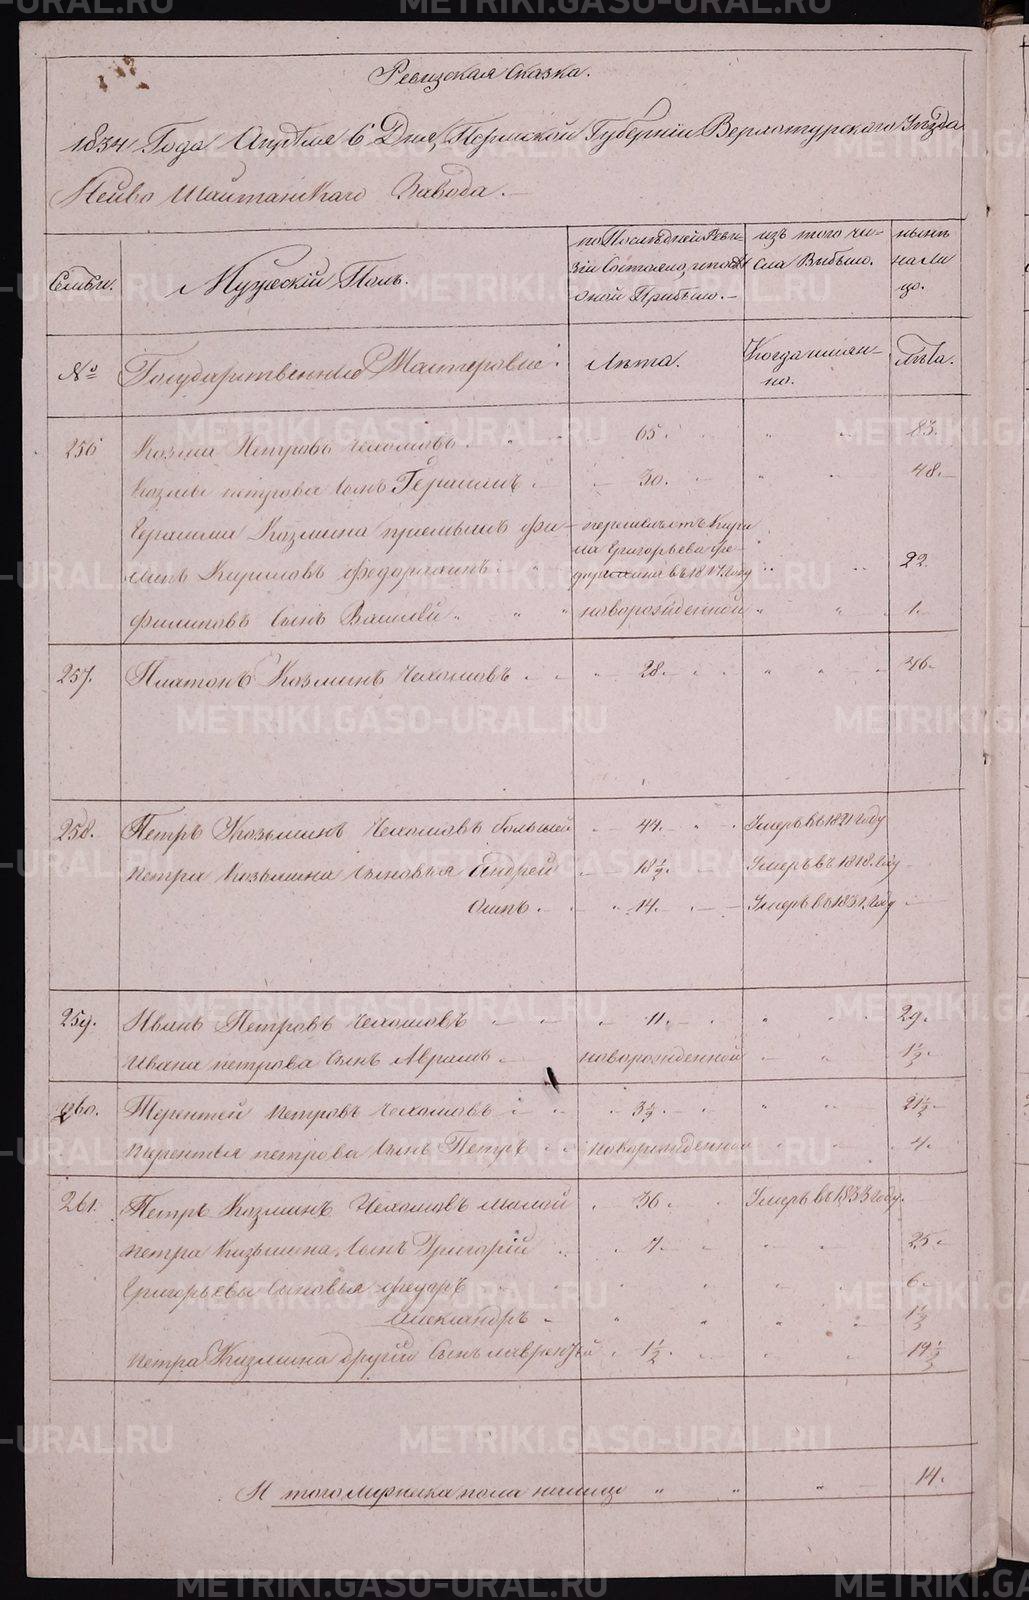 Ревизская Сказка.
1834 Года Апреля 6 Дня, Пермской Губернiи Верхотурскаго Уѣзда
Нейво Шайтанскаго Завода.
Семьи.
Мужескiй Полъ.
по Последней Реви-
зiи Состояло, и после
оной Прибыло.
изъ того чи-
сла Выбыло.
нынѣ
на ли
цо.
№
Государственные Мастеровые:
Лѣта.
Когда имян-
но.
Лѣта.
256 Козма Петровъ Чехомовъ 65. 83.
Козмы петрова Сынъ Герасимъ 30. 48.
Герасима Козмина приемышъ Фи- перешелъ отъ Кири
ла Григорьева Фе-
липъ Кириловъ Федоряхинъ доряхина въ 1817 году 22.
Филиповъ Сынъ Василей новорожденной 1.
257. Платонъ Козминъ Чехомовъ 28. 46.
258. Петръ Козьминъ Чехомовъ большей 44. Умеръ въ 1821 году
Петра Козьмина Сыновья Андрей 18½. Умеръ въ 1818 году
Осипъ 14. Умеръ въ 1831 году
259. Иванъ Петровъ Чехомовъ 11. 29.
Ивана петрова Сынъ Аврамъ новорожденной 1½.
260. Терентей Петровъ Чехомовъ 3½. 21½
Терентья петрова Сынъ Петръ новорожденной 4.
261. Петръ Козминъ Чехомовъ малой 36. Умеръ въ 1833 году.
Петра Козьмина Сынъ Григорiй 7. 25
Григорьевы Сыновья Федоръ 6
Александръ 1½
Петра Козмина другiй Сынъ лаврентiй 1½ 19½
Итого мужеска пола налицо 14.
METRIKI.GASO-URAL.RU